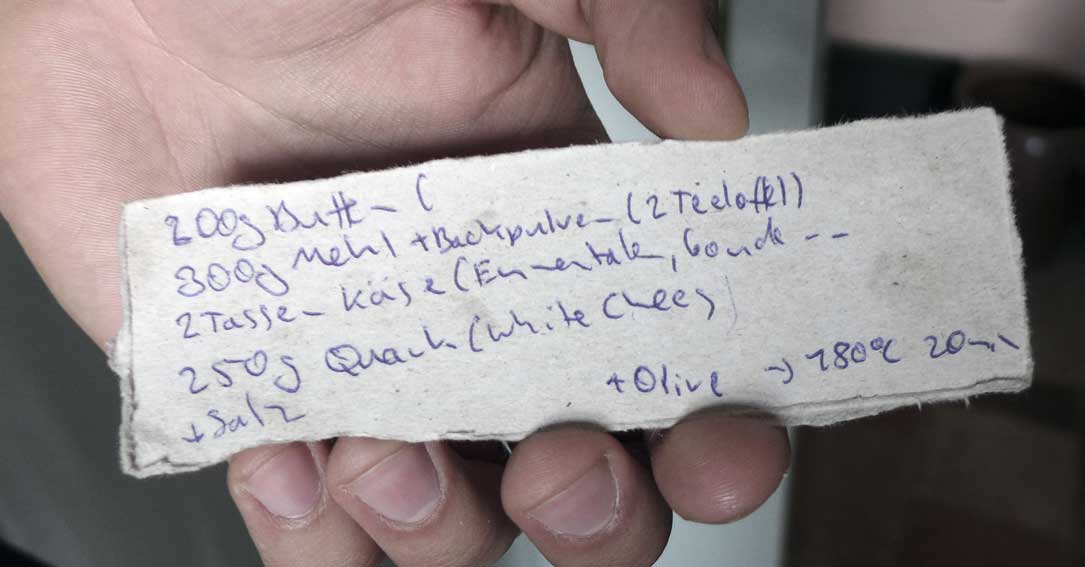 200g Butter (
300g Mehl + Backpulver (2 Teelöffel)
2 Tassen Käse (Emmentaler, Gouda --
250g Quark (White Chees)
+ Salz
+ Olive → 180°C 20min